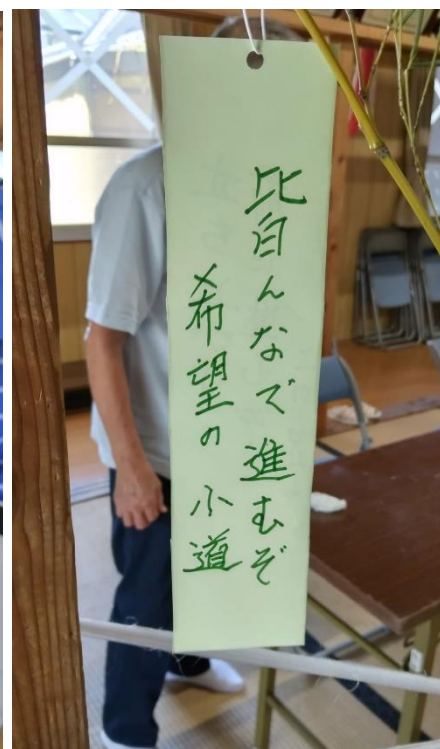 皆んなで進むぞ
希望の小道